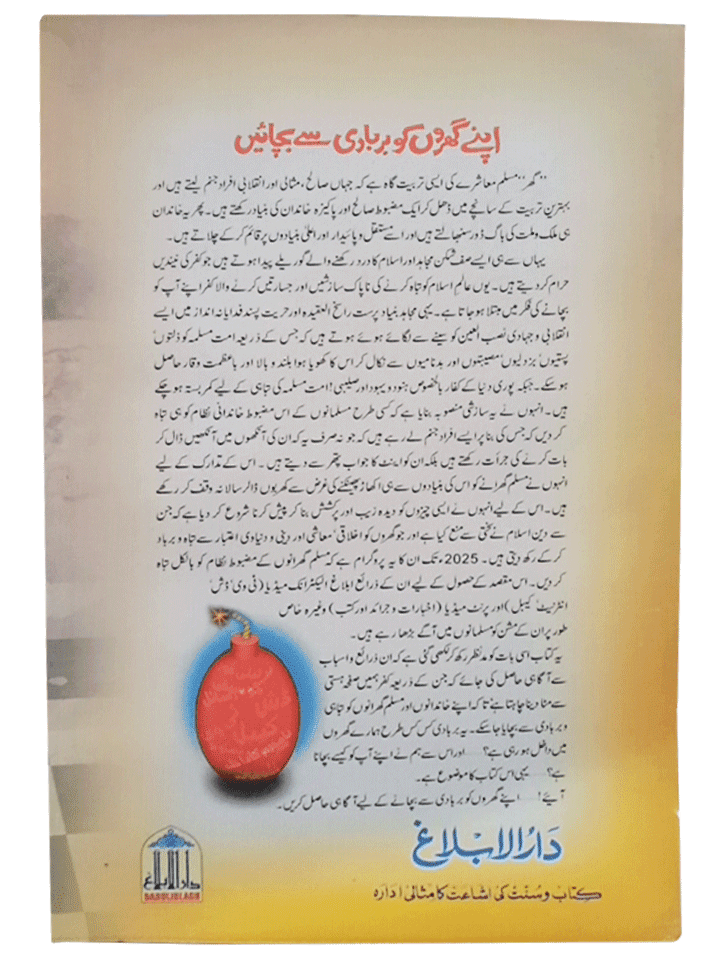 اپنے گھروں کو بربادی سے بچائیں
’’گھر‘‘ مسلم معاشرے کی ایسی تربیت گاہ ہے کہ جہاں صالح، مثالی اور انقلابی افراد جنم لیتے ہیں اور
بہترین تربیت کے سانچے میں ڈھل کر ایک مضبوط صالح اور پاکیزہ خاندان کی بنیاد رکھتے ہیں۔ پھر یہ خاندان
ہی ملک و ملت کی باگ ڈور سنبھالتے ہیں اور اسے مستقل و پائیدار اور اعلیٰ بنیادوں پر قائم کر کے چلاتے ہیں۔
یہاں سے ہی ایسے صف شکن مجاہد اور اسلام کا درد رکھنے والے گوریلے پیدا ہوتے ہیں جو کفر کی نیندیں
حرام کر دیتے ہیں۔ یوں عالم اسلام کو تباہ کرنے کی ناپاک سازشیں اور جسارتیں کرنے والا کفر اپنے آپ کو
بچانے کی فکر میں مبتلا ہو جاتا ہے۔ یہی مجاہد بنیاد پرست راسخ العقیدہ اور حریت پسند فدایانہ انداز میں ایسے
انقلابی و جہادی نصب العین کو سینے سے لگائے ہوئے ہوتے ہیں کہ جس کے ذریعہ امت مسلمہ کو ذلتوں’
پستیوں’ بزدلیوں’ مصیبتوں اور بدنامیوں سے نکال کر اس کا کھویا ہوا بلند و بالا اور باعظمت وقار حاصل
ہو سکے۔ جبکہ پوری دنیا کے کفار بالخصوص ہنود و یہود اور صلیبی! امت مسلمہ کی تباہی کے لیے کمر بستہ ہو چکے
ہیں۔ انہوں نے یہ سازشی منصوبہ بنایا ہے کہ کسی طرح مسلمانوں کے اس مضبوط خاندانی نظام کو ہی تباہ
کر دیں کہ جس کی بنا پر ایسے افراد جنم لے رہے ہیں کہ جو نہ صرف یہ کہ ان کی آنکھوں میں آنکھیں ڈال کر
بات کرنے کی جرأت رکھتے ہیں بلکہ ان کو اینٹ کا جواب پتھر سے دیتے ہیں۔ اس کے تدارک کے لیے
انہوں نے مسلم گھرانے کو اس کی بنیادوں سے ہی اکھاڑ پھینکنے کی غرض سے کھربوں ڈالر سالانہ وقف کر رکھے
ہیں۔ اس کے لیے انہوں نے ایسی چیزوں کو دیدہ زیب اور پرکشش بنا کر پیش کرنا شروع کر دیا ہے کہ جن
سے دین اسلام نے سختی سے منع کیا ہے اور جو گھروں کو اخلاقی’ معاشی اور دینی و دنیاوی اعتبار سے تباہ و برباد
کر کے رکھ دیتی ہیں۔ 2025ء تک ان کا یہ پروگرام ہے کہ مسلم گھرانوں کے مضبوط نظام کو بالکل تباہ
کر دیں۔ اس مقصد کے حصول کے لیے ان کے ذرائع ابلاغ الیکٹرانک میڈیا (ٹی وی’ ڈش’
انٹرنیٹ’ کیبل) اور پرنٹ میڈیا (اخبارات و جرائد اور کتب) وغیرہ خاص
طور پر ان کے مشن کو مسلمانوں میں آگے بڑھا رہے ہیں۔
یہ کتاب اسی بات کو مدنظر رکھ کر لکھی گئی ہے کہ ان ذرائع و اسباب
سے آگاہی حاصل کی جائے کہ جن کے ذریعہ کفر ہمیں صفحہ ہستی
سے مٹا دینا چاہتا ہے تاکہ اپنے خاندانوں اور مسلم گھرانوں کو تباہی
و بربادی سے بچایا جا سکے۔ یہ بربادی کس کس طرح ہمارے گھروں
میں داخل ہو رہی ہے؟ ...... اور اس سے ہم نے اپنے آپ کو کیسے بچانا
ہے؟ ...... یہی اس کتاب کا موضوع ہے۔
آئیے!...... اپنے گھروں کو بربادی سے بچانے کے لیے آگاہی حاصل کریں۔
ڈش
کیبل
دار الابلاغ
کتاب و سنت کی اشاعت کا مثالی ادارہ
دار الابلاغ
DARULIBLAGH